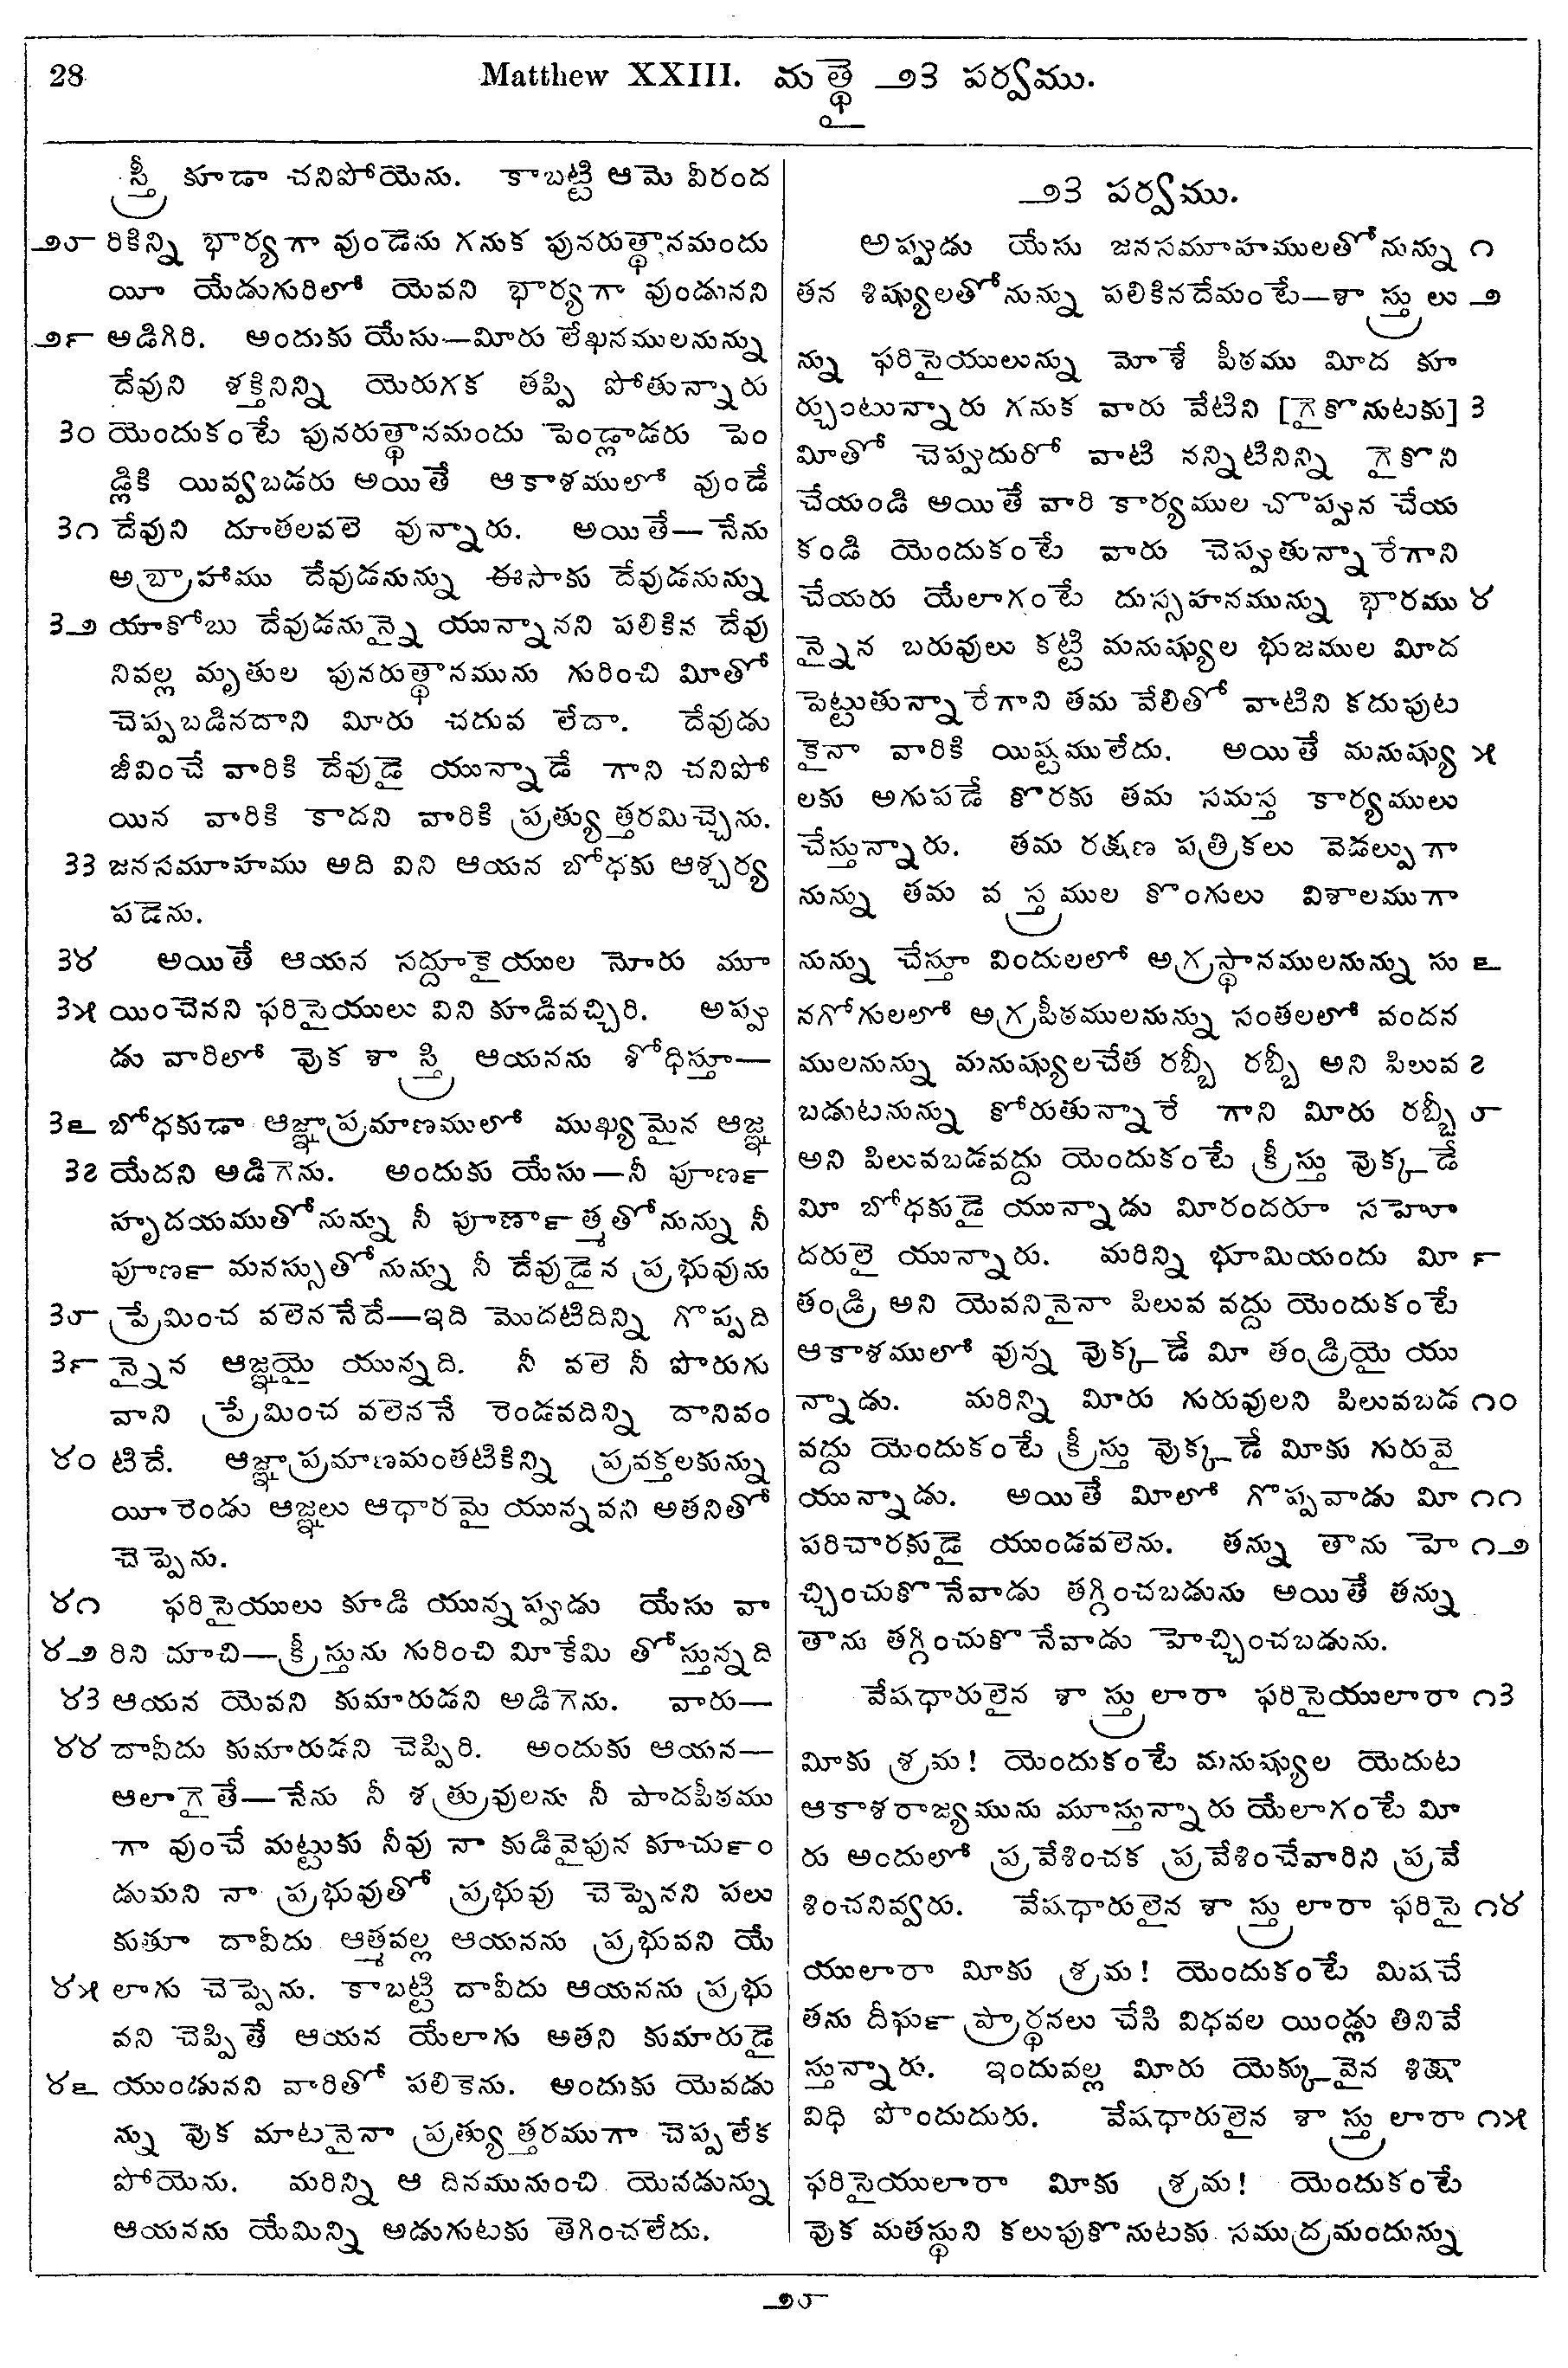 28 Matthew XXIII. మత్థై ౨౩ పర్వము.
స్త్రీ కూడా చనిపోయెను. కాబట్టి ఆమె వీరంద
౨౮ రికిన్ని భార్యగా వుండెను గనుక పునరుత్థానమందు
యీ యేడుగురిలో యెవని భార్యగా వుండునని
౨౯ అడిగిరి. అందుకు యేసు—మీరు లేఖనములనున్ను
దేవుని శక్తినిన్ని యెరుగక తప్పి పోతున్నారు
౩౦ యెందుకంటే పునరుత్థానమందు పెండ్లాడరు పెం
డ్లికి యివ్వబడరు అయితే ఆకాశములో వుండే
౩౧ దేవుని దూతలవలె వున్నారు. అయితే—నేను
అబ్రాహాము దేవుడనున్ను ఈసాకు దేవుడనున్ను
౩౨ యాకోబు దేవుడనున్నై యున్నానని పలికిన దేవు
నివల్ల మృతుల పునరుత్థానమును గురించి మీతో
చెప్పబడినదాని మీరు చదువ లేదా. దేవుడు
జీవించే వారికి దేవుడై యున్నాడే గాని చనిపో
యిన వారికి కాదని వారికి ప్రత్యుత్తరమిచ్చెను.
౩౩ జనసమూహము అది విని ఆయన బోధకు ఆశ్చర్య
పడెను.
౩౪ అయితే ఆయన సద్దూకైయుల నోరు మూ
౩౫ యించెనని ఫరిసైయులు విని కూడివచ్చిరి. అప్పు
డు వారిలో వుక శాస్త్రి ఆయనను శోధిస్తూ—
౩౬ బోధకుడా ఆజ్ఞాప్రమాణములో ముఖ్యమైన ఆజ్ఞ
౩౭ యేదని అడిగెను. అందుకు యేసు—నీ పూర్ణ
హృదయముతోనున్ను నీ పూర్ణాత్మతోనున్ను నీ
పూర్ణ మనస్సుతోనున్ను నీ దేవుడైన ప్రభువును
౩౮ ప్రేమించ వలెననేదే—ఇది మొదటిదిన్ని గొప్పది
౩౯ న్నైన ఆజ్ఞయై యున్నది. నీ వలె నీ పొరుగు
వాని ప్రేమించ వలెననే రెండవదిన్ని దానివం
౪౦ టిదే. ఆజ్ఞాప్రమాణమంతటికిన్ని ప్రవక్తలకున్ను
యీ రెండు ఆజ్ఞలు ఆధారమై యున్నవని అతనితో
చెప్పెను.
౪౧ ఫరిసైయులు కూడి యున్నప్పుడు యేసు వా
౪౨ రిని చూచి—క్రీస్తును గురించి మీకేమి తోస్తున్నది
౪౩ ఆయన యెవని కుమారుడని అడిగెను. వారు—
౪౪ దావీదు కుమారుడని చెప్పిరి. అందుకు ఆయన—
ఆలాగైతే—నేను నీ శత్రువులను నీ పాదపీఠము
గా వుంచే మట్టుకు నీవు నా కుడివైపున కూర్చుం
డుమని నా ప్రభువుతో ప్రభువు చెప్పెనని పలు
కుతూ దావీదు ఆత్మవల్ల ఆయనను ప్రభువని యే
౪౫ లాగు చెప్పెను. కాబట్టి దావీదు ఆయనను ప్రభు
వని చెప్పితే ఆయన యేలాగు అతని కుమారుడై
౪౬ యుండునని వారితో పలికెను. అందుకు యెవడు
న్ను వుక మాటనైనా ప్రత్యుత్తరముగా చెప్పలేక
పోయెను. మరిన్ని ఆ దినమునుంచి యెవడున్ను
ఆయనను యేమిన్ని అడుగుటకు తెగించలేదు.
౨౩ పర్వము.
అప్పుడు యేసు జనసమూహములతోనున్ను ౧
తన శిష్యులతోనున్ను పలికినదేమంటే—శాస్త్రులు ౨
న్ను ఫరిసైయులున్ను మోశే పీఠము మీద కూ
ర్చుంటున్నారు గనుక వారు వేటిని [గైకొనుటకు] ౩
మీతో చెప్పుదురో వాటి నన్నిటినిన్ని గైకొని
చేయండి అయితే వారి కార్యముల చొప్పున చేయ
కండి యెందుకంటే వారు చెప్పుతున్నారేగాని
చేయరు యేలాగంటే దుస్సహనమున్ను భారము ౪
న్నైన బరువులు కట్టి మనుష్యుల భుజముల మీద
పెట్టుతున్నారేగాని తమ వేలితో వాటిని కదుపుట
కైనా వారికి యిష్టములేదు. అయితే మనుష్యు ౫
లకు అగుపడే కొరకు తమ సమస్త కార్యములు
చేస్తున్నారు. తమ రక్షణ పత్రికలు వెడల్పుగా
నున్ను తమ వస్త్రముల కొంగులు విశాలముగా
నున్ను చేస్తూ విందులలో అగ్రస్థానములనున్ను సు ౬
నగోగులలో అగ్రపీఠములనున్ను సంతలలో వందన
ములనున్ను మనుష్యులచేత రబ్బీ రబ్బీ అని పిలువ ౭
బడుటనున్ను కోరుతున్నారే గాని మీరు రబ్బీ ౮
అని పిలువబడవద్దు యెందుకంటే క్రీస్తు వుక్కడే
మీ బోధకుడై యున్నాడు మీరందరూ సహో
దరులై యున్నారు. మరిన్ని భూమియందు మీ ౯
తండ్రి అని యెవనినైనా పిలువ వద్దు యెందుకంటే
ఆకాశములో వున్న వుక్కడే మీ తండ్రియై యు
న్నాడు. మరిన్ని మీరు గురువులని పిలువబడ ౧౦
వద్దు యెందుకంటే క్రీస్తు వుక్కడే మీకు గురువై
యున్నాడు. అయితే మీలో గొప్పవాడు మీ ౧౧
పరిచారకుడై యుండవలెను. తన్ను తాను హె ౧౨
చ్చించుకొనేవాడు తగ్గించబడును అయితే తన్ను
తాను తగ్గించుకొనేవాడు హెచ్చించబడును.
వేషధారులైన శాస్త్రులారా ఫరిసైయులారా ౧౩
మీకు శ్రమ! యెందుకంటే మనుష్యుల యెదుట
ఆకాశరాజ్యమును మూస్తున్నారు యేలాగంటే మీ
రు అందులో ప్రవేశించక ప్రవేశించేవారిని ప్రవే
శించనివ్వరు. వేషధారులైన శాస్త్రులారా ఫరిసై ౧౪
యులారా మీకు శ్రమ! యెందుకంటే మిషచే
తను దీర్ఘ ప్రార్థనలు చేసి విధవల యిండ్లు తినివే
స్తున్నారు. ఇందువల్ల మీరు యెక్కువైన శిక్షా
విధి పొందుదురు. వేషధారులైన శాస్త్రులారా ౧౫
ఫరిసైయులారా మీకు శ్రమ! యెందుకంటే
వుక మతస్థుని కలుపుకొనుటకు సముద్రమందున్ను
౨౮